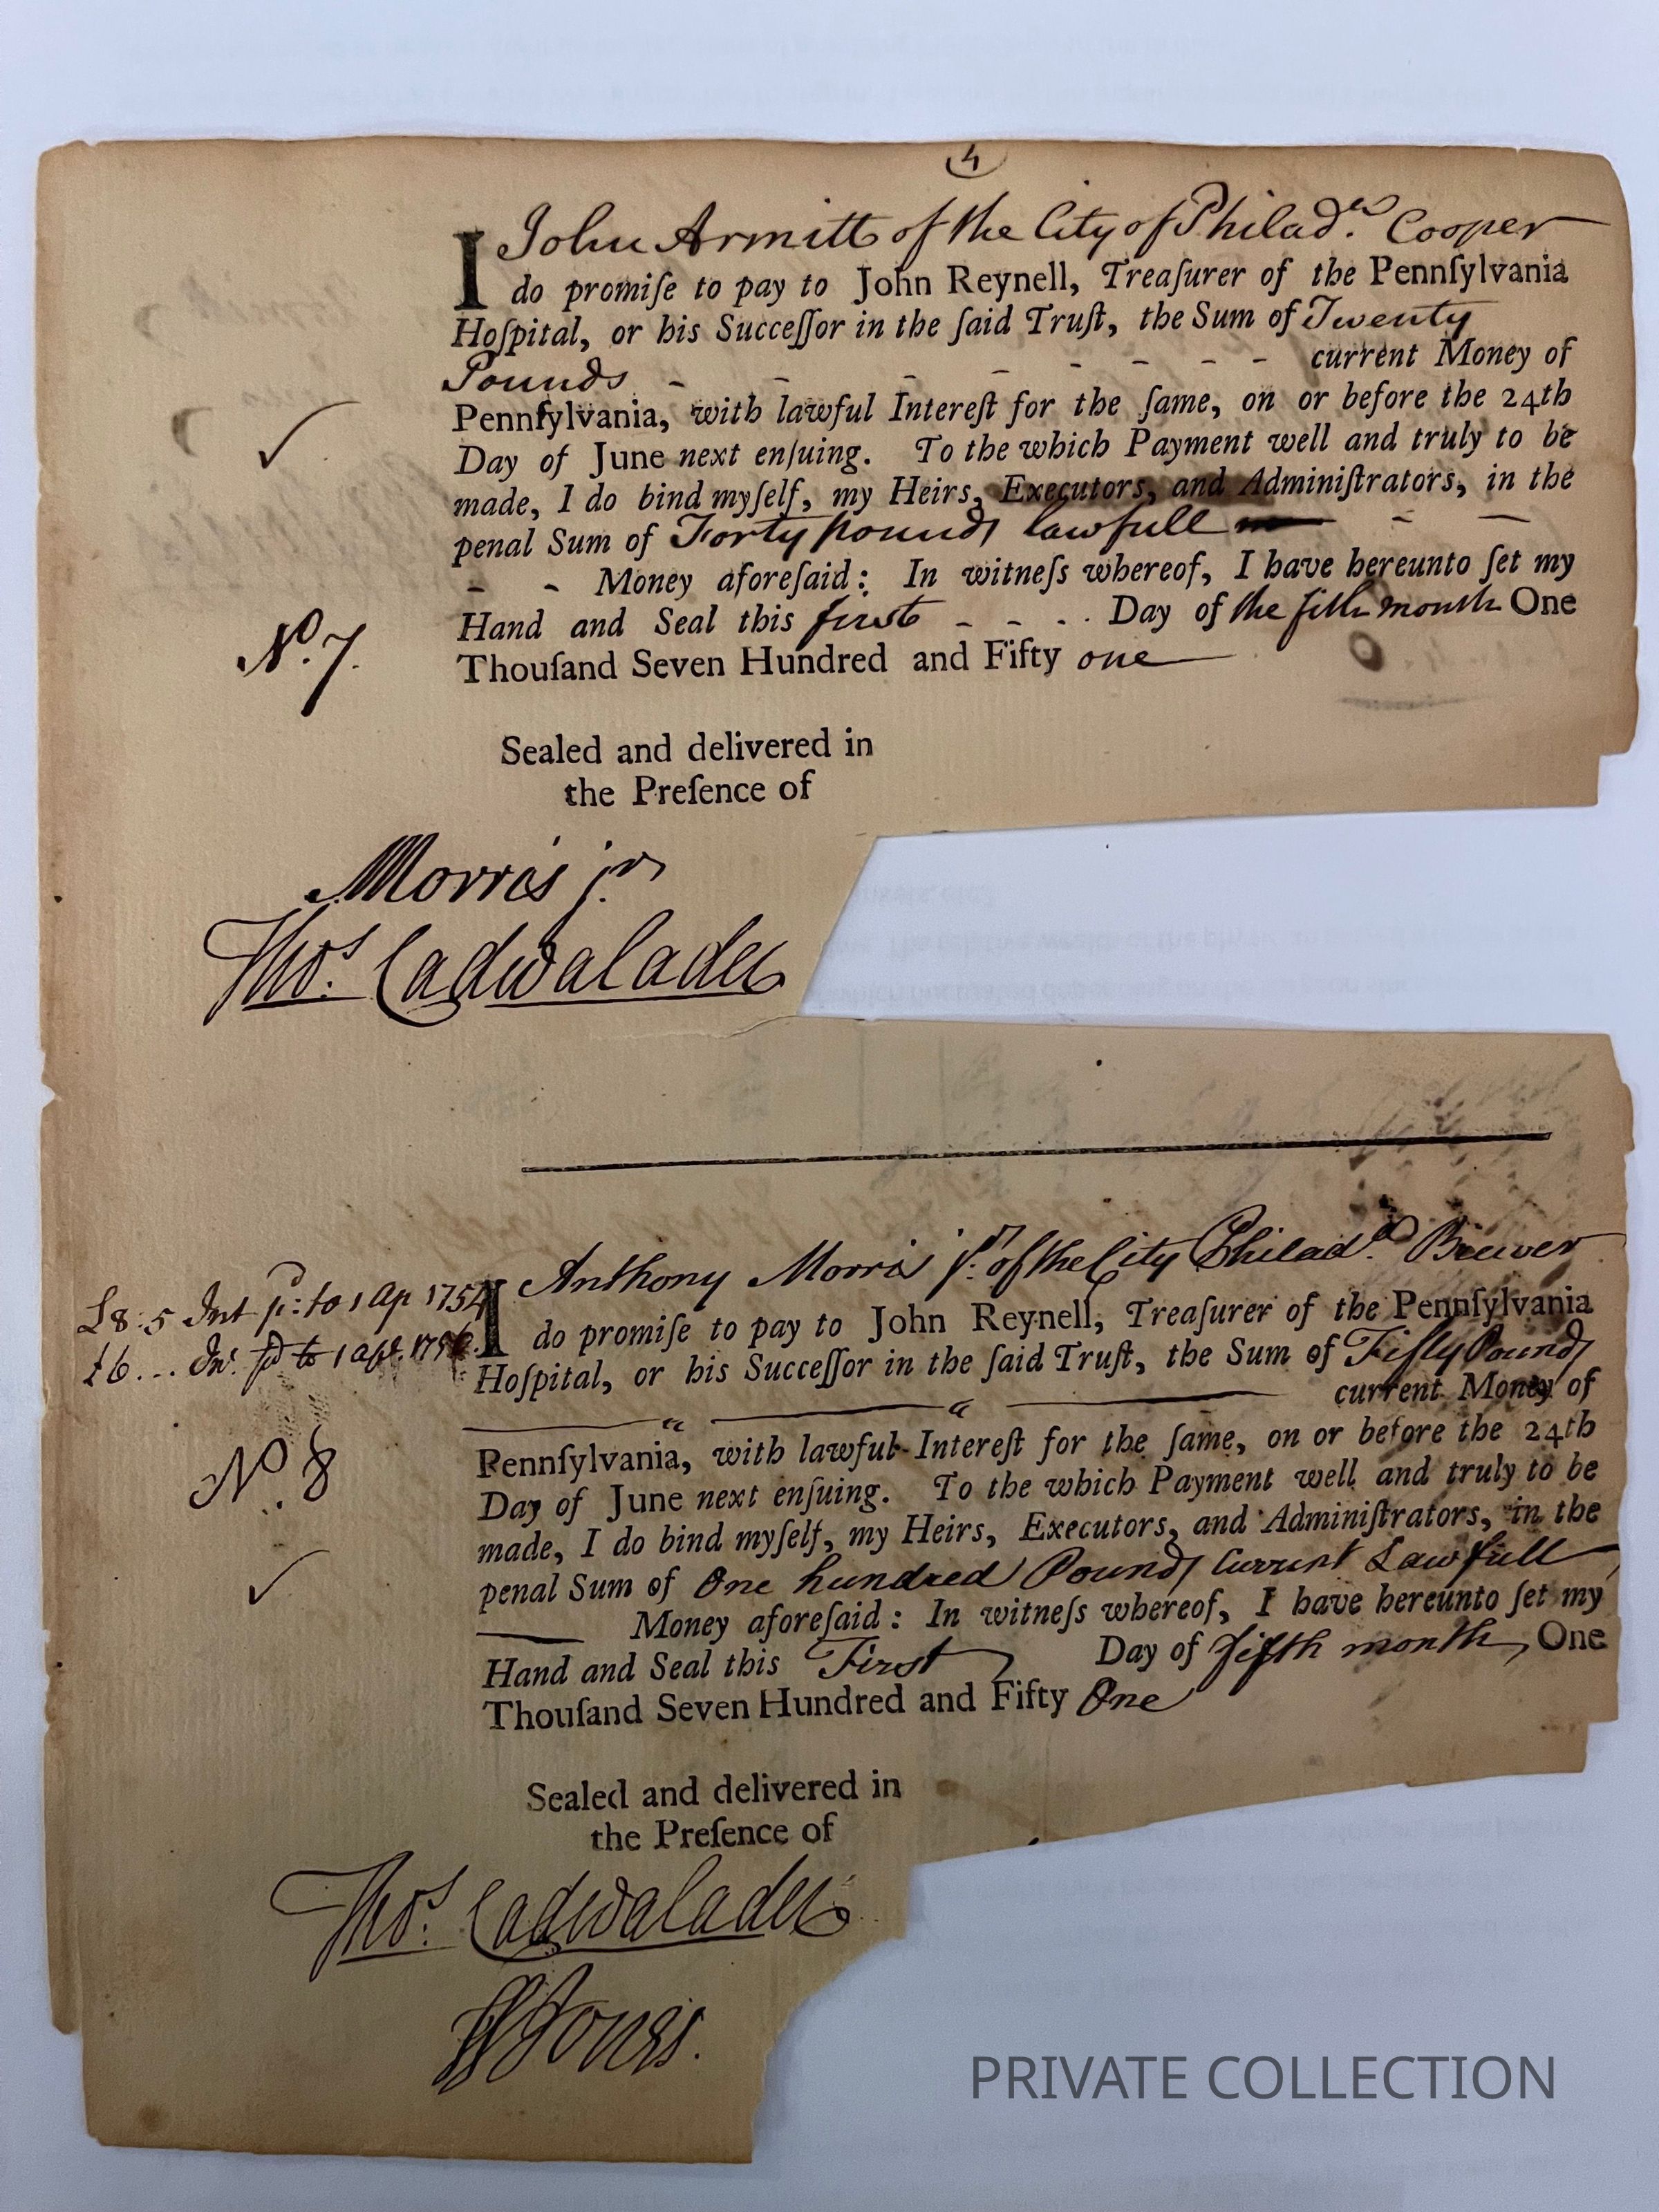 4
I John Armitt of the City of Philad.ª Cooper
do promiſe to pay to John Reynell, Treaſurer of the Pennſylvania
Hoſpital, or his Succeſſor in the ſaid Truſt, the Sum of Twenty
Pounds - - - - - - - current Money of
Pennſylvania, with lawful Intereſt for the ſame, on or before the 24th
Day of June next enſuing. To the which Payment well and truly to be
made, I do bind myſelf, my Heirs, Executors, and Adminiſtrators, in the
penal Sum of Forty pounds lawfull - -
- - Money aforeſaid: In witneſs whereof, I have hereunto ſet my
Hand and Seal this first - - - Day of the fith month One
Thouſand Seven Hundred and Fifty one
No. 7.
Sealed and delivered in
the Preſence of
Morris jr
Thos. Cadwalader
I Anthony Morris jr. of the City Philad.ª Brewer
£8:5 Int p: to 1 Ap 1754
do promiſe to pay to John Reynell, Treaſurer of the Pennſylvania
£6... Int. pd to 1 apl. 1756.
Hoſpital, or his Succeſſor in the ſaid Truſt, the Sum of Fifty Pounds
" " current Money of
No. 8
Pennſylvania, with lawful Intereſt for the ſame, on or before the 24th
Day of June next enſuing. To the which Payment well and truly to be
made, I do bind myſelf, my Heirs, Executors, and Adminiſtrators, in the
penal Sum of One hundred Pounds Currant Lawfull
Money aforeſaid: In witneſs whereof, I have hereunto ſet my
Hand and Seal this First Day of fifth month, One
Thouſand Seven Hundred and Fifty One
Sealed and delivered in
the Preſence of
Thos. Cadwalader
Jones.
PRIVATE COLLECTION